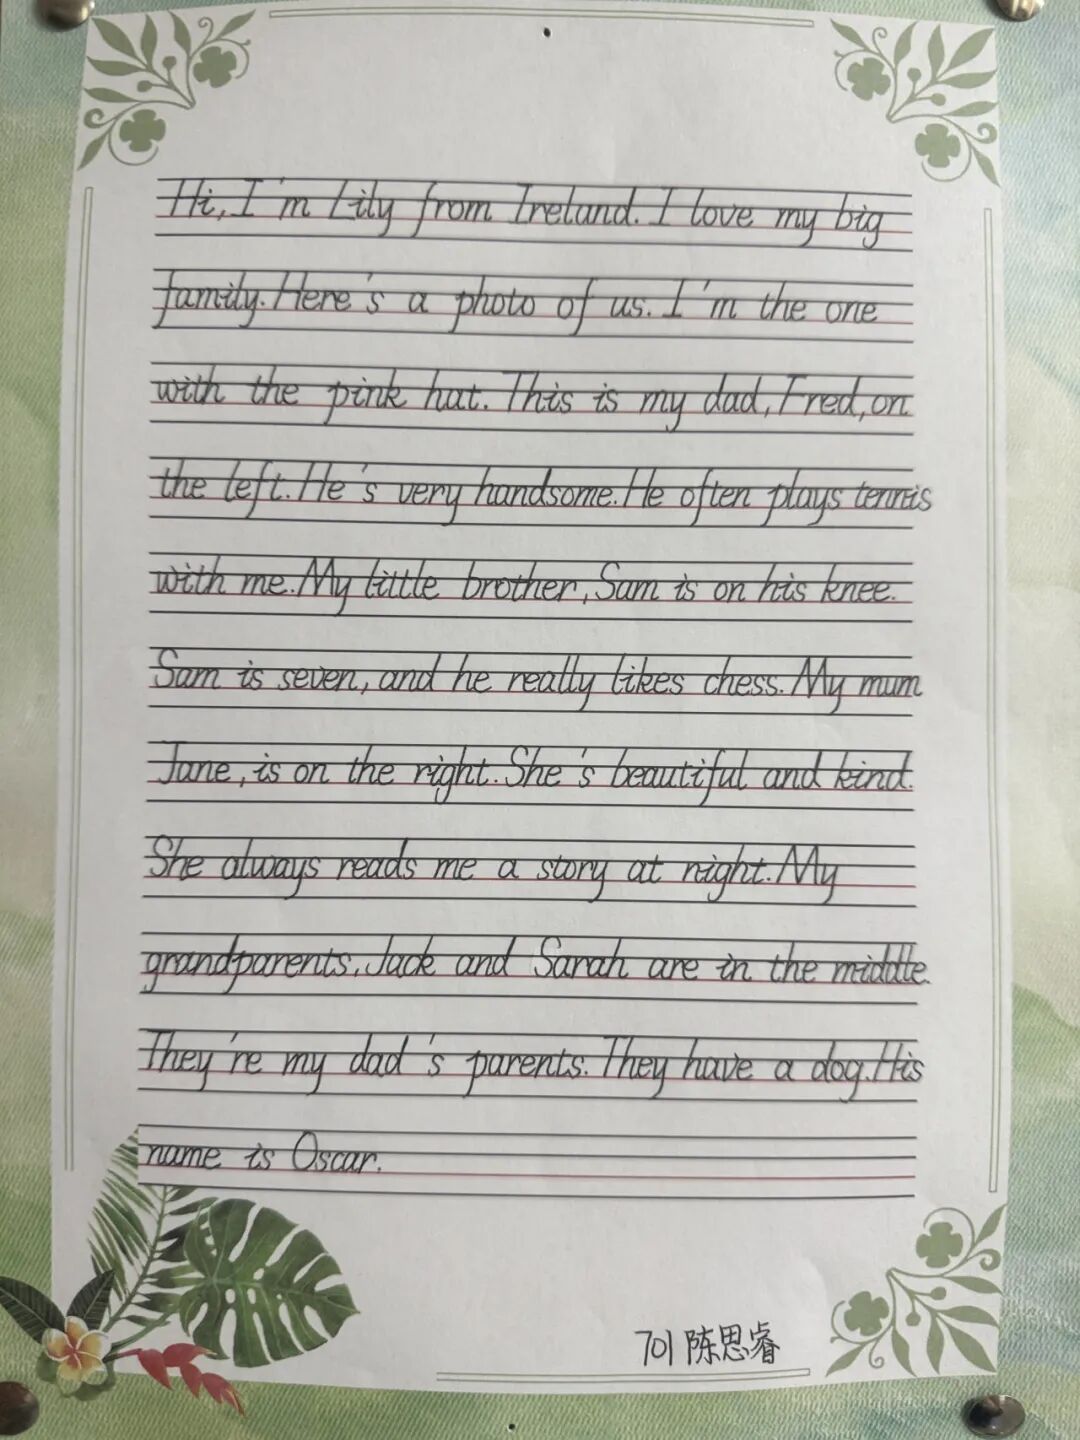 Hi, I'm Lily from Ireland. I love my big
family. Here's a photo of us. I'm the one
with the pink hat. This is my dad, Fred, on
the left. He's very handsome. He often plays tennis
with me. My little brother, Sam is on his knee.
Sam is seven, and he really likes chess. My mum
Jane, is on the right. She's beautiful and kind.
She always reads me a story at night. My
grandparents, Jack and Sarah are in the middle.
They're my dad's parents. They have a dog. His
name is Oscar.
701 陈思睿